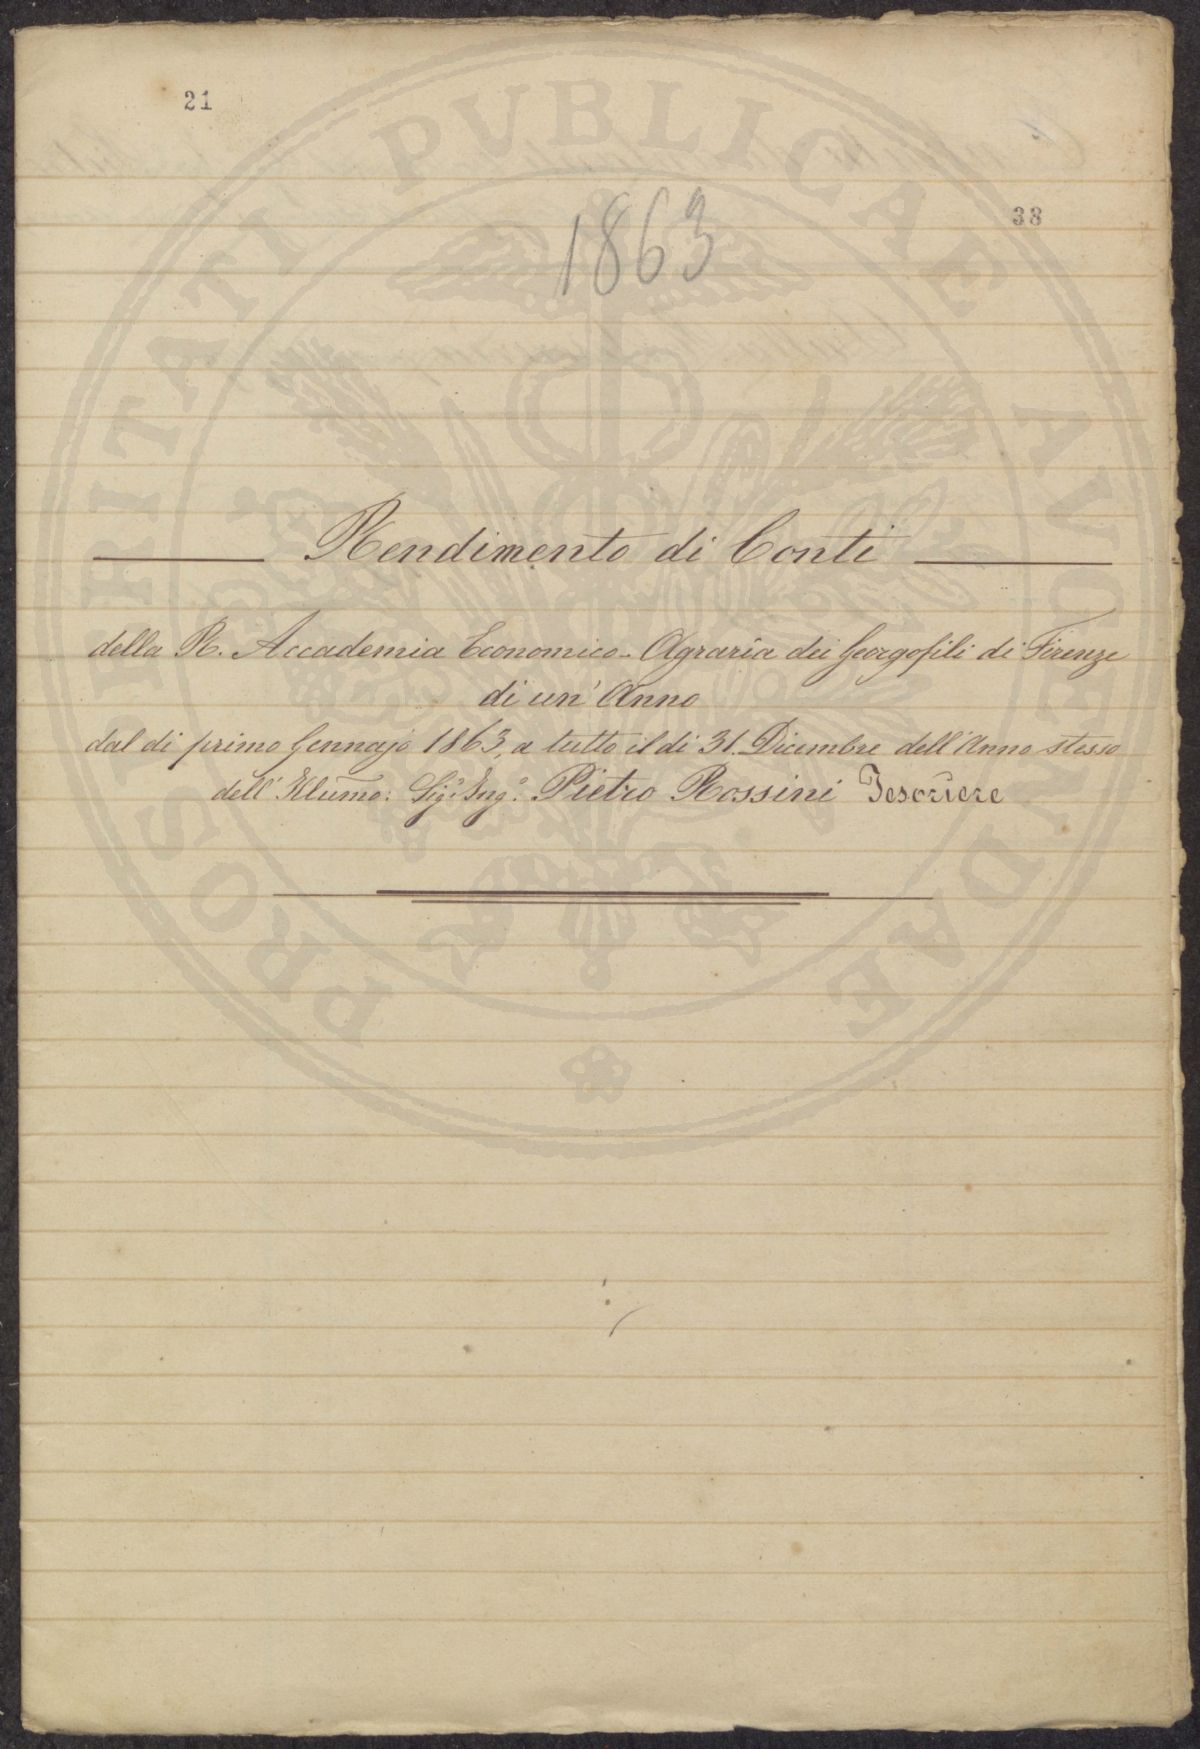 21
38
1863
Rendimento di Conti
della R. Accademia Economico-Agraria dei Georgofili di Firenze
di un' Anno
dal di primo Gennajo 1863, a tutto il di 31. Dicembre dell'Anno stesso
dell' Illumo: Sigr. Ingr. Pietro Rossini Tesoriere
PROSPERITATI PVBLICAE AVGENDAE